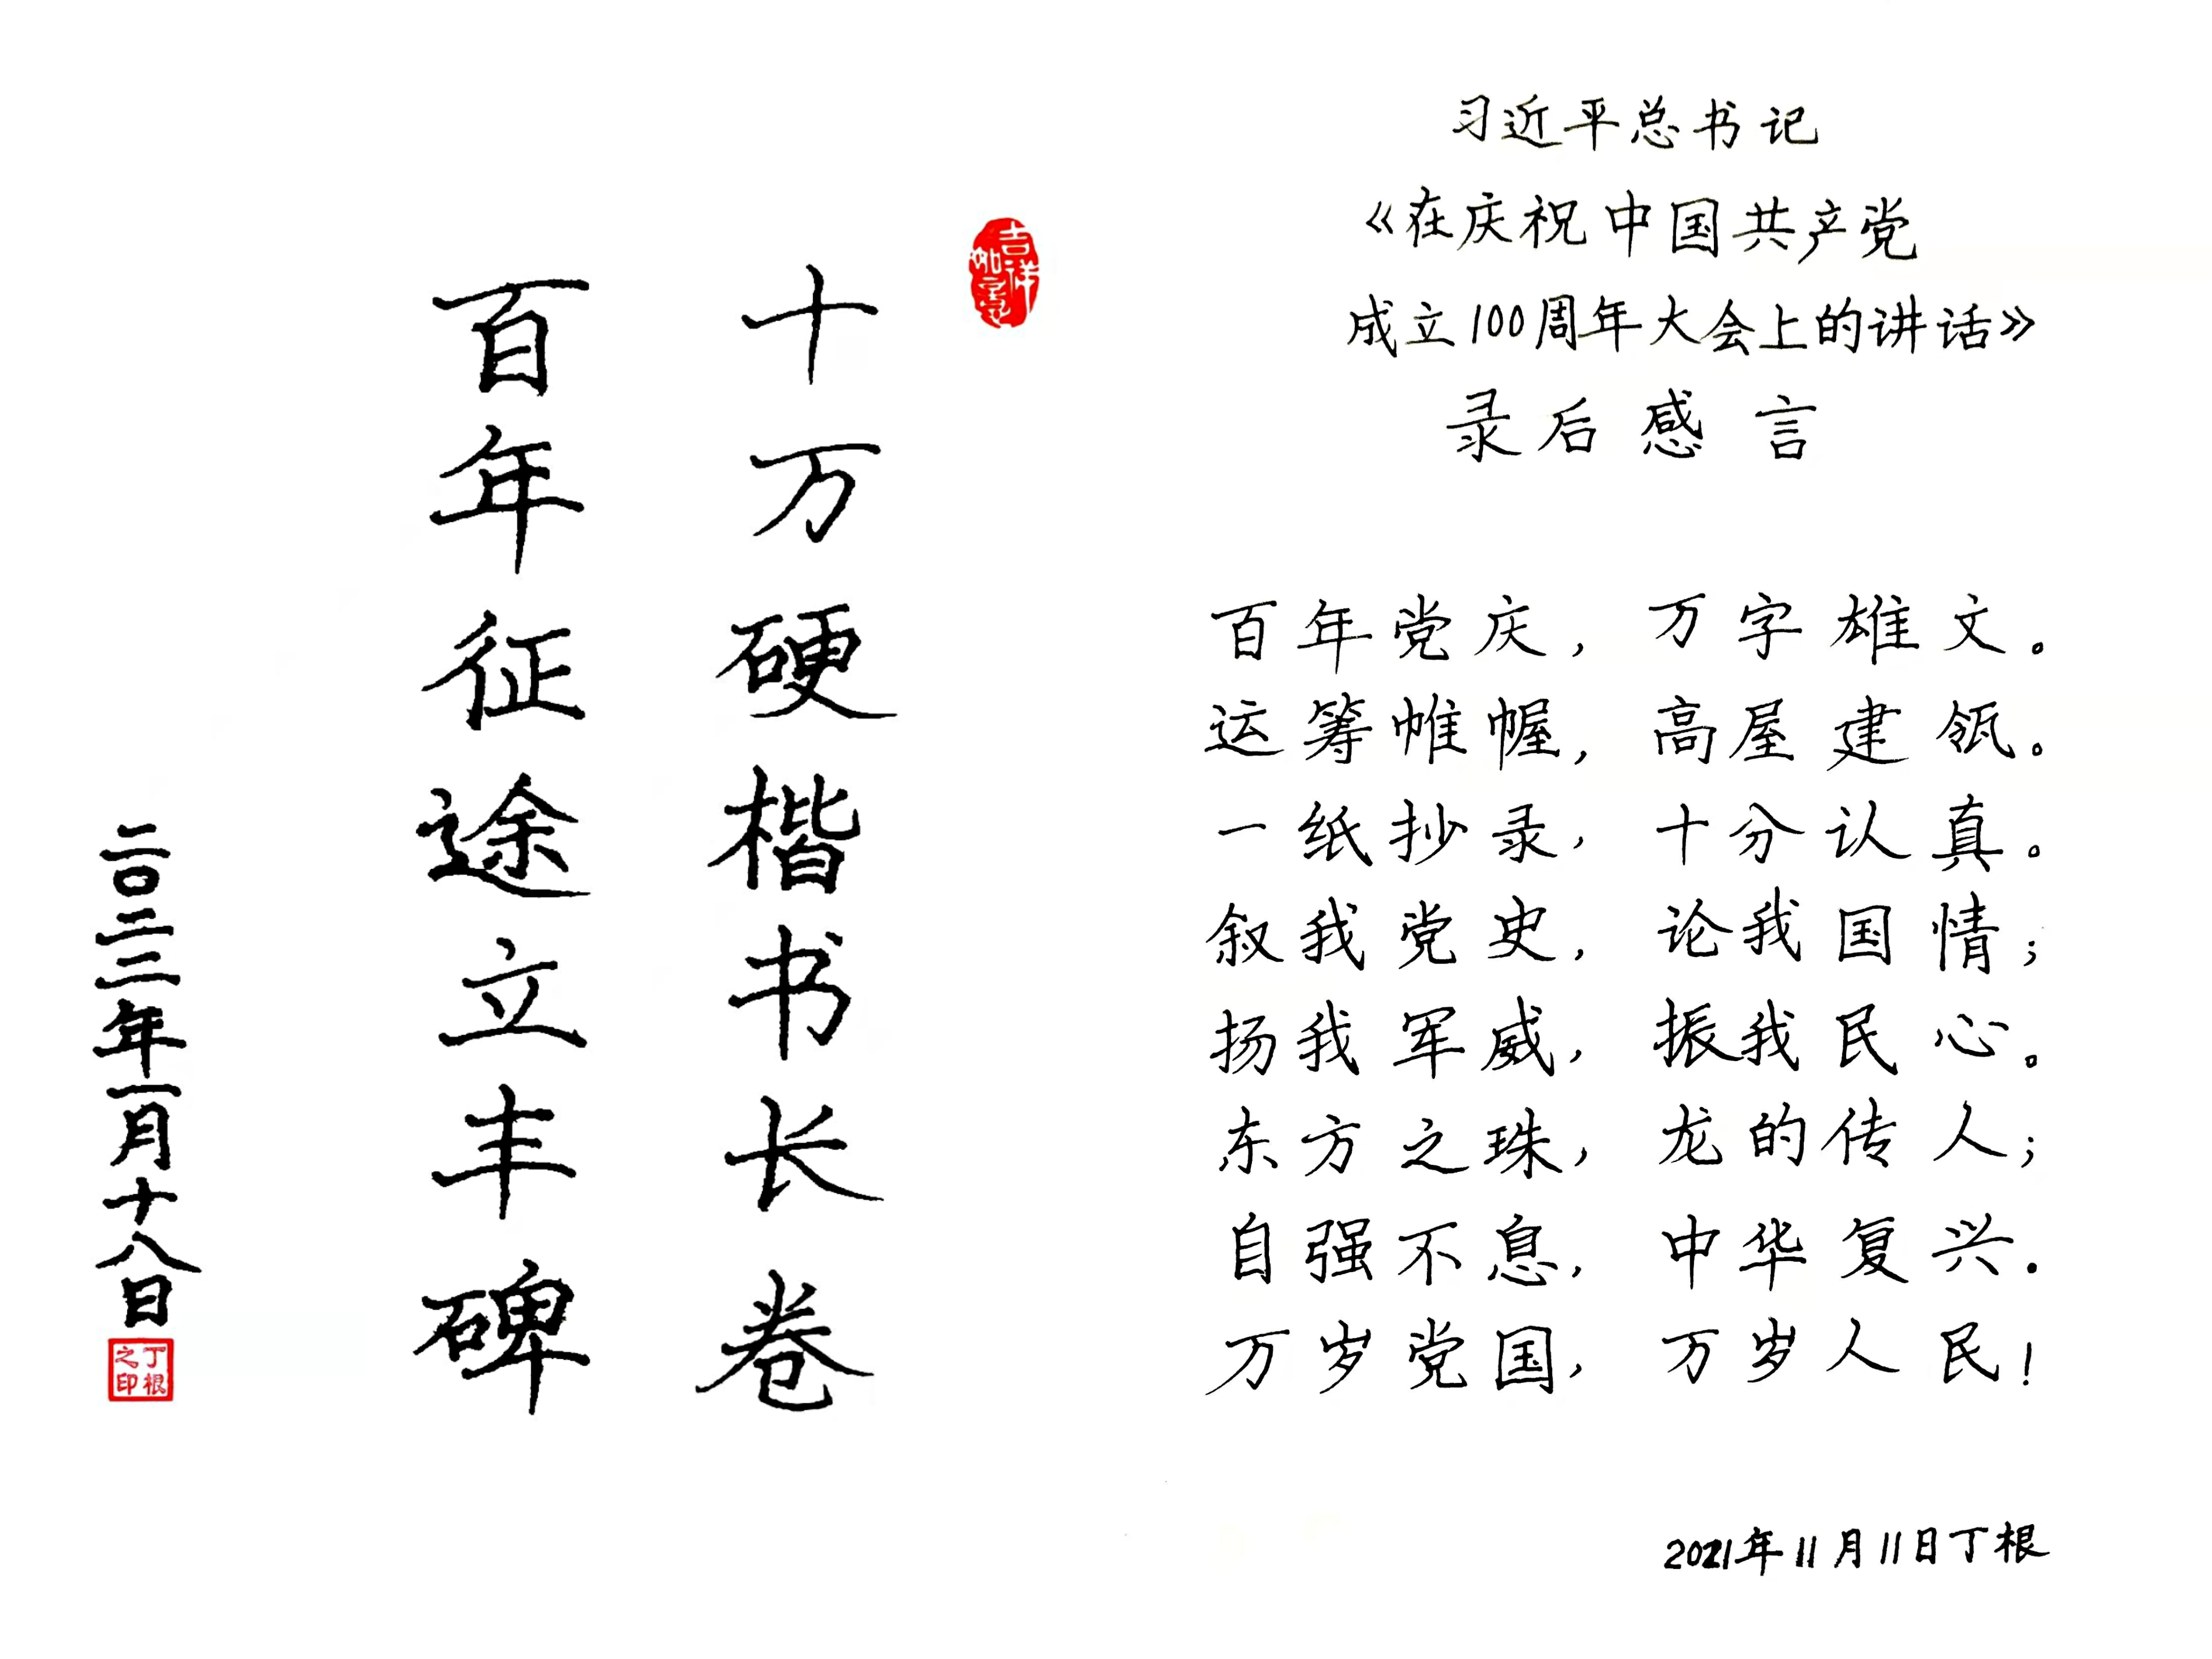 习近平总书记
《在庆祝中国共产党
成立100周年大会上的讲话》
录后感言
百年党庆，万字雄文。
运筹帷幄，高屋建瓴。
一纸抄录，十分认真。
叙我党史，论我国情；
扬我军威，振我民心。
东方之珠，龙的传人；
自强不息，中华复兴.
万岁党国，万岁人民！
2021年11月11日丁根
吉祥如意
十万硬楷书长卷
百年征途立丰碑
二〇二三年一月十八日
丁根之印